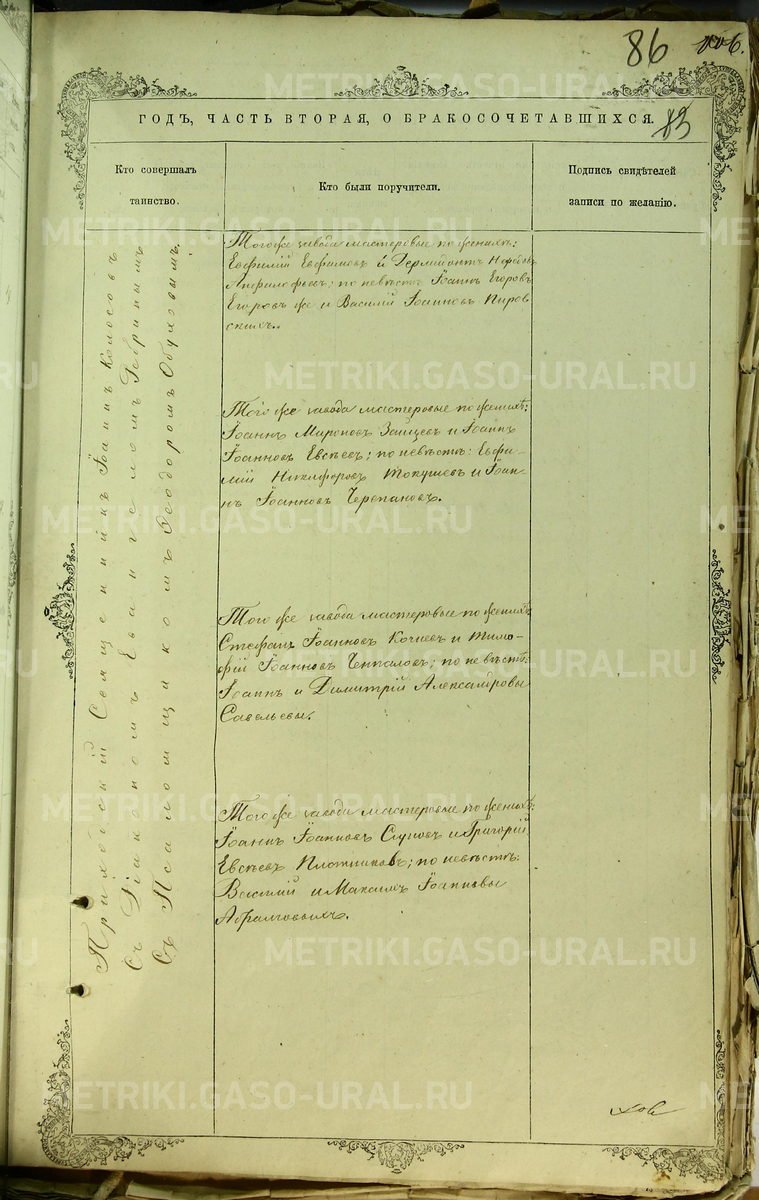 86
83
ГОДЪ, ЧАСТЬ ВТОРАЯ, О БРАКОСОЧЕТАВШИХСЯ.
Кто совершалъ
таинство.
Кто были поручители.
Подпись свидѣтелей
записи по желанію.
Приходскій Священникъ Іоаннъ Колосовъ
съ Діакономъ Евангеломъ
съ Псаломщикомъ Ѳеодоромъ
Того же завода мастеровые по женихѣ:
Евфилій Евфимовъ и
по невѣстѣ Іоаннъ Егоровъ
Егоровъ же и Василій Іоанновъ Пиров
скихъ.
Того же завода мастеровые по женихѣ:
Іоаннъ Мироновъ Зайцевъ и Іоаннъ
Іоанновъ Евсѣевъ; по невѣстѣ: Евфи-
мій Никифоровъ и Іоан-
нъ Іоанновъ Черепановъ.
Того же завода мастеровые по женихѣ
Стефанъ Іоанновъ Кочневъ и Тимо-
фей Іоанновъ Чепаловъ; по невѣстѣ:
Іоаннъ и Димитрій Александровы
Савельевы.
Того же завода мастеровые по женихѣ:
Іоаннъ Іоанновъ и Григорій
Евсѣевъ Плотниковъ; по невѣстѣ
Василій и Максимъ Іоанновы
METRIKI.GASO-URAL.RU